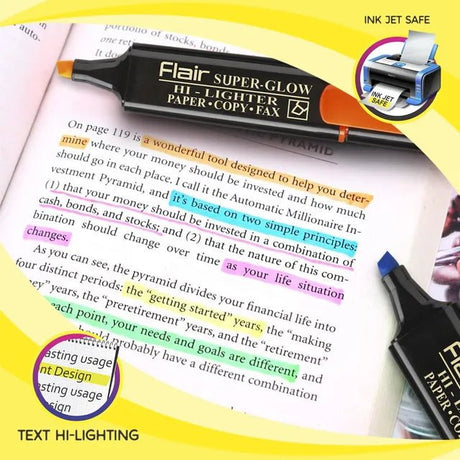 INK JET SAFE
INK JET
SAFE
Flair SUPER-GLOW
HI-LIGHTER
PAPER•COPY•FAX
portion of stocks, bonds,
It do
PYRAMID
On page 119 is a wonderful tool designed to help you deter-
mine where your money should be invested and how much
should go in each place. I call it the Automatic Millionaire In-
vestment Pyramid, and it's based on two simple principles:
(1) that your money should be invested in a combination of
cash, bonds, and stocks; and (2) that the nature of this com-
bination should change over time as your life situation
changes.
As you can see, the pyramid divides your financial life into
four distinct periods: the "getting started" years, the "making
ney" years, the "preretirement" years, and the "retirement"
each point, your needs and goals are different, and
should probably have a different combination
Flair
HI-L
PAPER•CO
asting usage
nt Design
asting usage
sign
TEXT HI-LIGHTING